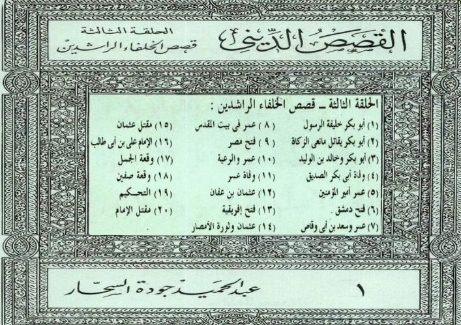 القصص الديني
الحلقة الثالثة
قصص الخلفاء الراشدين
الحلقة الثالثة - قصص الخلفاء الراشدين :
(١) أبو بكر خليفة الرسول
(٢) أبو بكر يقاتل مانعى الزكاة
(٣) أبو بكر وخالد بن الوليد
(٤) وفاة أبى بكر الصديق
(٥) عمر أمير المؤمنين
(٦) فتح دمشق .
(٧) عمر وسعد بن أبى وقاص
(٨) عمر فى بيت المقدس
(٩) فتح مصر
(١٠) عمر والرعية
(١١) وفاة عمر
(١٢) عثمان بن عفان
(١٣) فتح إفريقية
(١٤) عثمان وثورة الأمصار
(١٥) مقتل عثمان
(١٦) الإمام على بن أبى طالب
(١٧) وقعة الجمل
(١٨) وقعة صفين
(١٩) التحكيم
(٢٠) مقتل الإمام
١
عبد الحميد جودة السحار